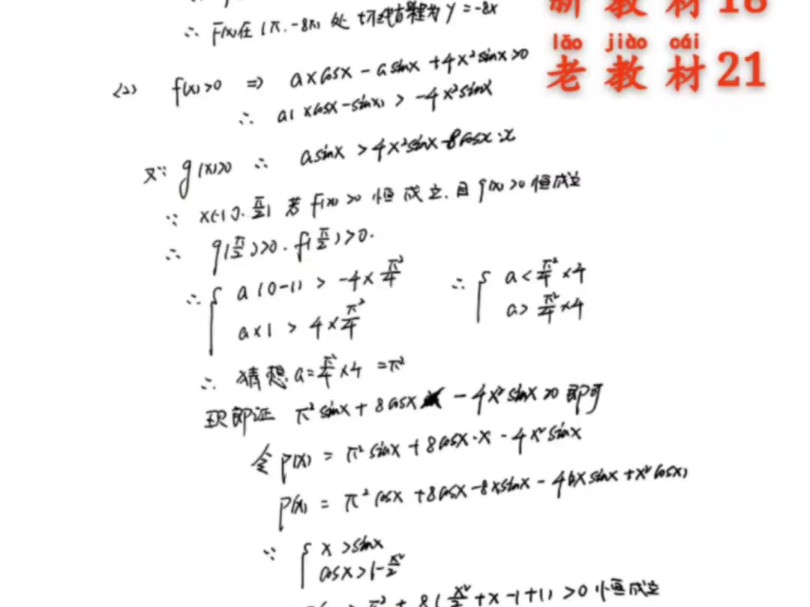 ∴ F(x)在(π,-8π)处切线方程为y=-8x
新教材18
lǎo jiào cái
老教材21
(2) f(x)>0 ⇒ axcosx-asinx+4x²sinx>0
∴ a(xcosx-sinx)>-4x²sinx
又∵ g(x)>0 ∴ asinx>4x²sinx-8cosx·x
∵ x∈(0,π/2) 若f(x)>0恒成立,且g(x)>0恒成立
∴ g(π/2)>0,f(π/2)>0.
∴ { a(0-1)>-4×π²/4 ∴ { a<π²/4×4
a×1>4×π²/4 a>π²/4×4
∴ 猜想a=π²/4×4=π²
现即证 π²sinx+8cosx -4x²sinx>0即可
令p(x)=π²sinx+8cosx·x-4x²sinx
p'(x)=π²cosx+8cosx-8xsinx-4(2xsinx+x²cosx)
∵ { x>sinx
cosx>1-x²/2
>0恒成立